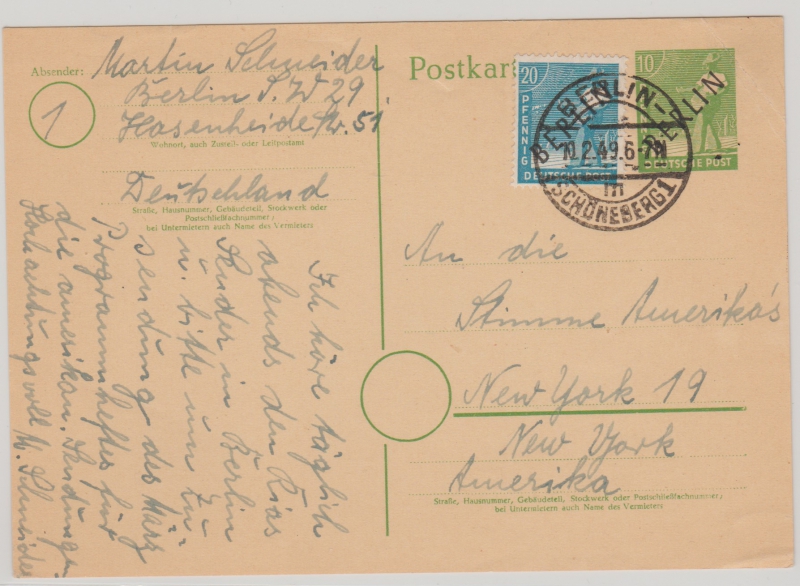 Absender:
Martin Schneider
Berlin S.W 29
Hasenheide Str. 51
Wohnort, auch Zustell- oder Leitpostamt
1
Deutschland
Straße, Hausnummer, Gebäudeteil, Stockwerk oder
Postschließfachnummer;
bei Untermietern auch Name des Vermieters
Ich höre täglich
abends den Rias
Sender in Berlin
u. bitte um Zu-
sendung des März
Programmheftes für
die amerikan. Sendungen
Hochachtungsvoll M. Schneider
Postkar
20
PFENNIG
DEUTSCHE POST
BERLIN
10
DEUTSCHE POST
BERLIN
BERLIN-
2.49.6-
m
SCHÖNEBERG 1
An die
Stimme Amerika's
New York 19
New York
Amerika
Straße, Hausnummer, Gebäudeteil, Stockwerk oder Postschließfachnummer;
bei Untermietern auch Name des Vermieters